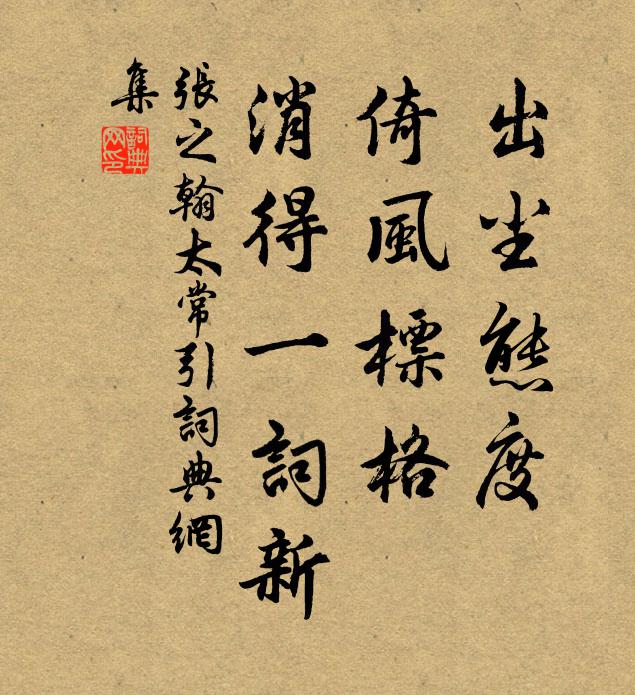 出尘態度
倚風標格
消得一詞新
張之翰太常引詞典網
集
詞典
网印